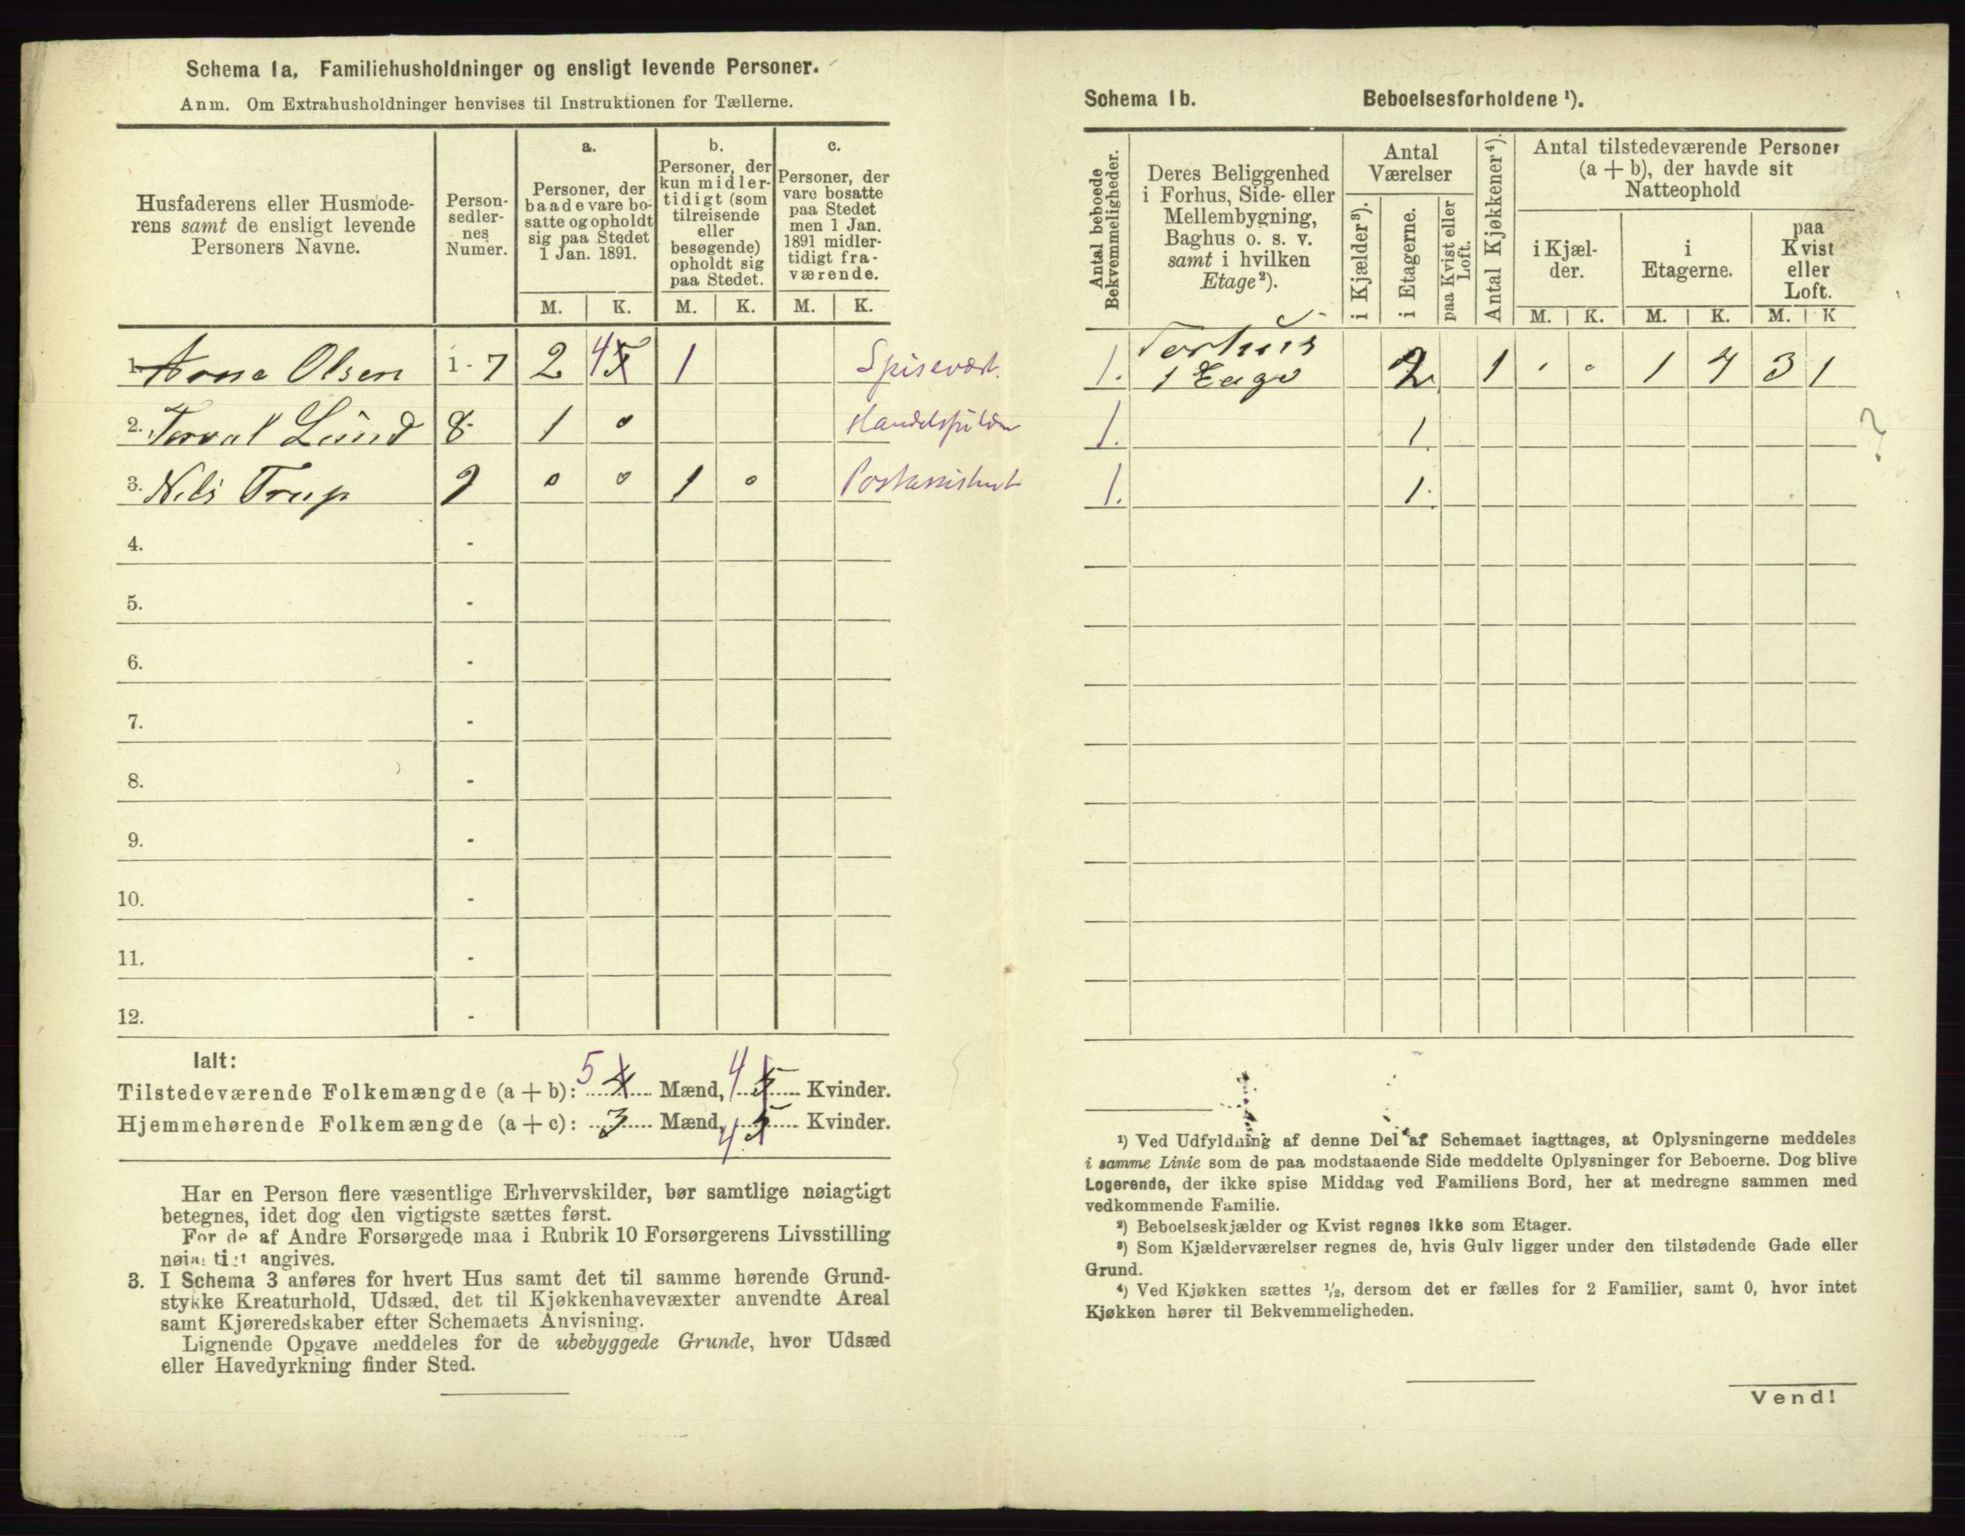 Schema 1a. Familiehusholdninger og ensligt levende Personer.
Anm. Om Extrahusholdninger henvises til Instruktionen for Tællerne.
Husfaderens eller Husmode-
rens samt de ensligt levende
Personers Navne.
Person-
sedler-
nes
Numer.
a.
Personer, der
baade vare bo-
satte og opholdt
sig paa Stedet
1 Jan. 1891.
b.
Personer, der
kun midler-
tidigt (som
tilreisende
eller
besøgende)
opholdt sig
paa Stedet.
c.
Personer, der
vare bosatte
paa Stedet
men 1 Jan.
1891 midler-
tidigt fra-
værende.
M. K. M. K. M. K.
1. Olsen 1-7 2 4 5 1 Spisevært.
2. Lund 8 1 0
3. Nils Trup 9 0 0 1 0 Postassistent
4. -
5. -
6. -
7. -
8. -
9. -
10. -
11. -
12. -
Ialt:
Tilstedeværende Folkemængde (a + b): 5 4 Mænd, 4 5 Kvinder.
Hjemmehørende Folkemængde (a + c): 3 Mænd, 4 5 Kvinder.
Har en Person flere væsentlige Erhvervskilder, bør samtlige nøiagtigt
betegnes, idet dog den vigtigste sættes først.
For de af Andre Forsørgede maa i Rubrik 10 Forsørgerens Livsstilling
nøiagtigt angives.
3. I Schema 3 anføres for hvert Hus samt det til samme hørende Grund-
stykke Kreaturhold, Udsæd, det til Kjøkkenhavevæxter anvendte Areal
samt Kjøreredskaber efter Schemaets Anvisning.
Lignende Opgave meddeles for de ubebyggede Grunde, hvor Udsæd
eller Havedyrkning finder Sted.
Schema 1b. Beboelsesforholdene ¹).
Antal beboede
Bekvemmeligheder.
Deres Beliggenhed
i Forhus, Side- eller
Mellembygning,
Baghus o. s. v.
samt i hvilken
Etage²).
Antal
Værelser
i Kjælder³).
i Etagerne.
paa Kvist eller
Loft.
Antal Kjøkkener⁴).
Antal tilstedeværende Personer
(a + b), der havde sit
Natteophold
i Kjæl-
der.
i
Etagerne.
paa
Kvist
eller
Loft.
M. K. M. K. M. K
Forhus
1. 1 Etage 2 1 · · 1 4 3 1
1. 1 ?
1. 1.
¹) Ved Udfyldning af denne Del af Schemaet iagttages, at Oplysningerne meddeles
i samme Linie som de paa modstaaende Side meddelte Oplysninger for Beboerne. Dog blive
Logerende, der ikke spise Middag ved Familiens Bord, her at medregne sammen med
vedkommende Familie.
²) Beboelseskjælder og Kvist regnes ikke som Etager.
³) Som Kjælderværelser regnes de, hvis Gulv ligger under den tilstødende Gade eller
Grund.
⁴) Ved Kjøkken sættes ½, dersom det er fælles for 2 Familier, samt 0, hvor intet
Kjøkken hører til Bekvemmeligheden.
Vend!